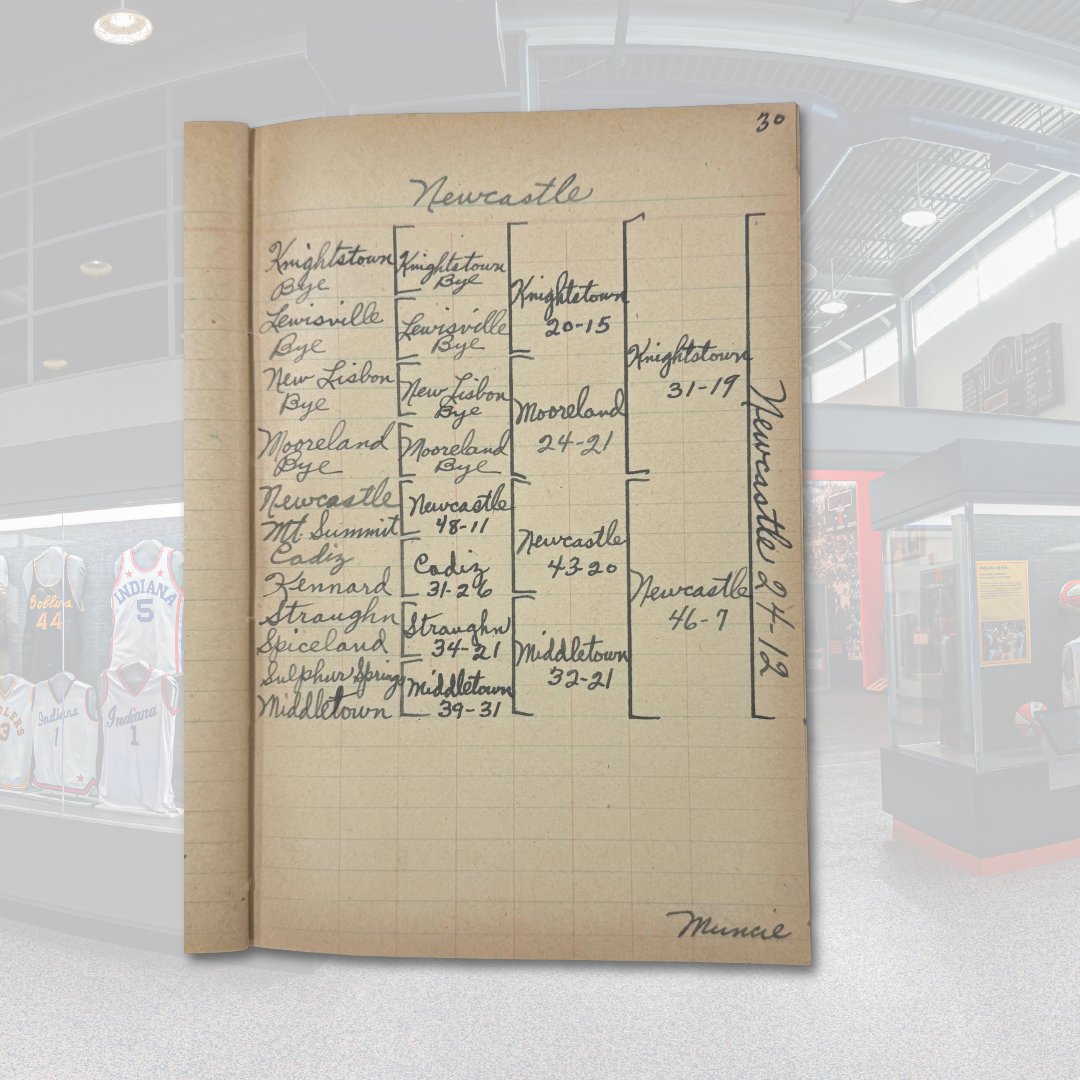 30
Newcastle
Knightstown
Bye
Lewisville
Bye
New Lisbon
Bye
Mooreland
Bye
Newcastle
Mt. Summit
Cadiz
Kennard
Straughn
Spiceland
Sulphur Springs
Middletown
Knightstown
Bye
Lewisville
Bye
New Lisbon
Bye
Mooreland
Bye
Newcastle
48-11
Cadiz
31-26
Straughn
34-21
Middletown
39-31
Knightstown
20-15
Mooreland
24-21
Newcastle
43-20
Middletown
32-21
Knightstown
31-19
Newcastle
46-7
Newcastle 24-12
Muncie
Goblins
44
INDIANA
5
3
Indiana
1
Indiana
1